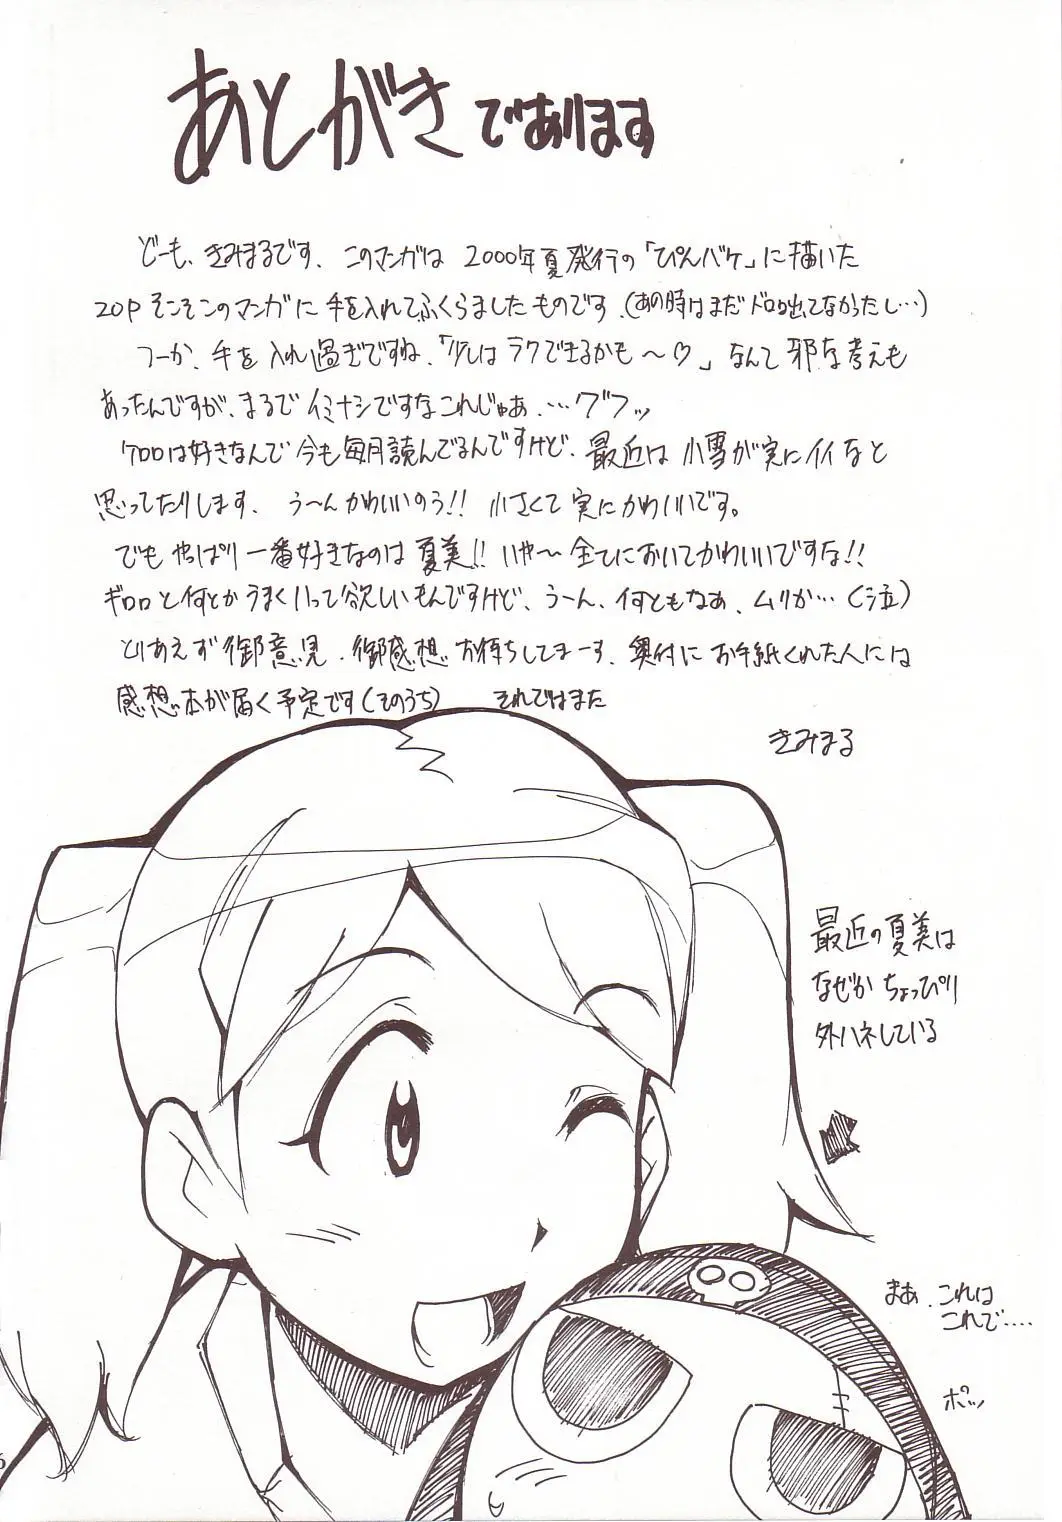 あとがきであります
どーも、きみまるです、このマンガは2000年夏発行の「ぴんバケ」に描いた
20Pそこそこのマンガに手を入れてふくらましたものです、(あの時はまだドロロ出てなかったし…)
つーか、手を入れ過ぎですね、「少しはラクできるかも〜♡」なんて邪な考えも
あったんですが、まるでイミナシですなこれじゃあ、…グフッ
ケロロは好きなんで今も毎月読んでるんですけど、最近は小雪が実にイイなと
思ってたりします、う〜んかわいいのう!!小さくて実にかわいいです。
でもやっぱり一番好きなのは夏美!!いや〜全てにおいてかわいいですな!!
ギロロと何とかうまくいって欲しいもんですけど、う〜ん、何ともなあ、ムリか…(泣)
とりあえず御意見、御感想お待ちしてまーす、奥付にお手紙くれた人には
感想本が届く予定です(そのうち) それではまた
きみまる
最近の夏美は
なぜかちょっぴり
外ハネしている
まぁ、これは
これで‥‥
ポッ
6